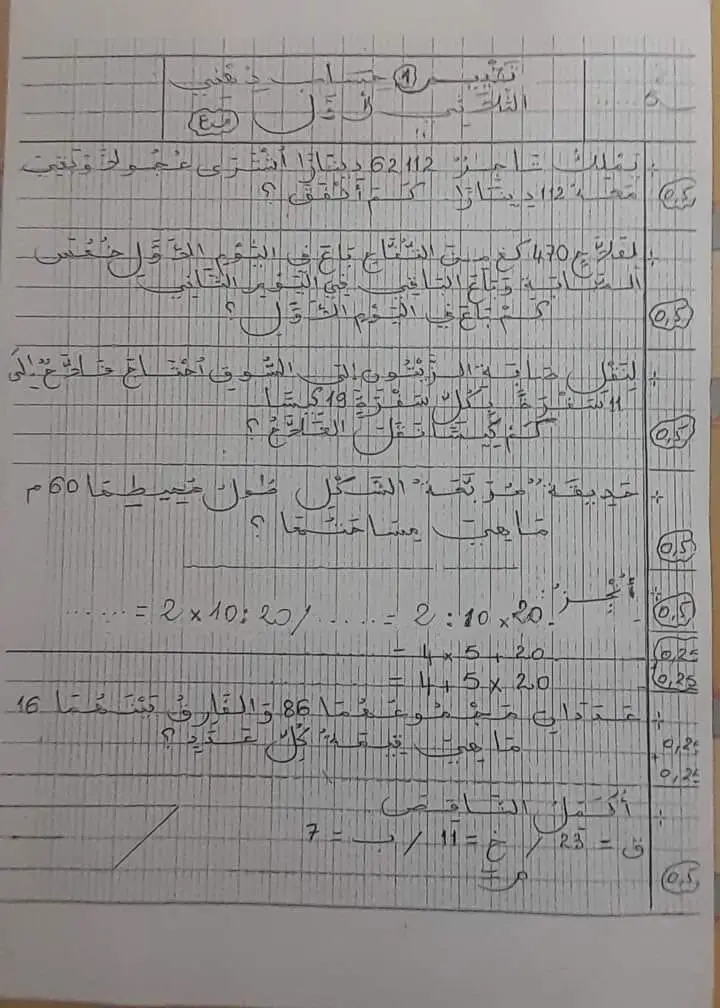 تقييم 1 حساب ذهني
الثلاثي الأول
يملك تاجر 62112 دينارًا أشترى عجولا وبقي
معه 112 دينارًا. كم أنفق؟
0,5
لفلاح 470 كغ من التفاح باع في اليوم الأول خمس
الصابة وباع الباقي في اليوم الثاني
كم باع في اليوم الأول؟
0,5
لنقل صابة الزيتون إلى السوق أحتاج فلاح إلى
11 سفرة بكل سفرة 19 كيسا
كم كيسا نقل الفلاح؟
0,5
حديقة "مربعة" الشكل طول محيطها 60 م
ما هي مساحتها؟
0,5
أنجز:
20 × 10 : 2 = ...... / 20 : 10 × 2 = ......
0,5
20 + 5 × 4 =
0,25
20 × 5 + 4 =
0,25
عددان مجموعهما 86 والفارق بينهما 16
ما هي قيمة كل عدد؟
0,25
+
0,25
أكمل الناقص
ق = 23 / غ = 11 / ب = 7
م =
0,5